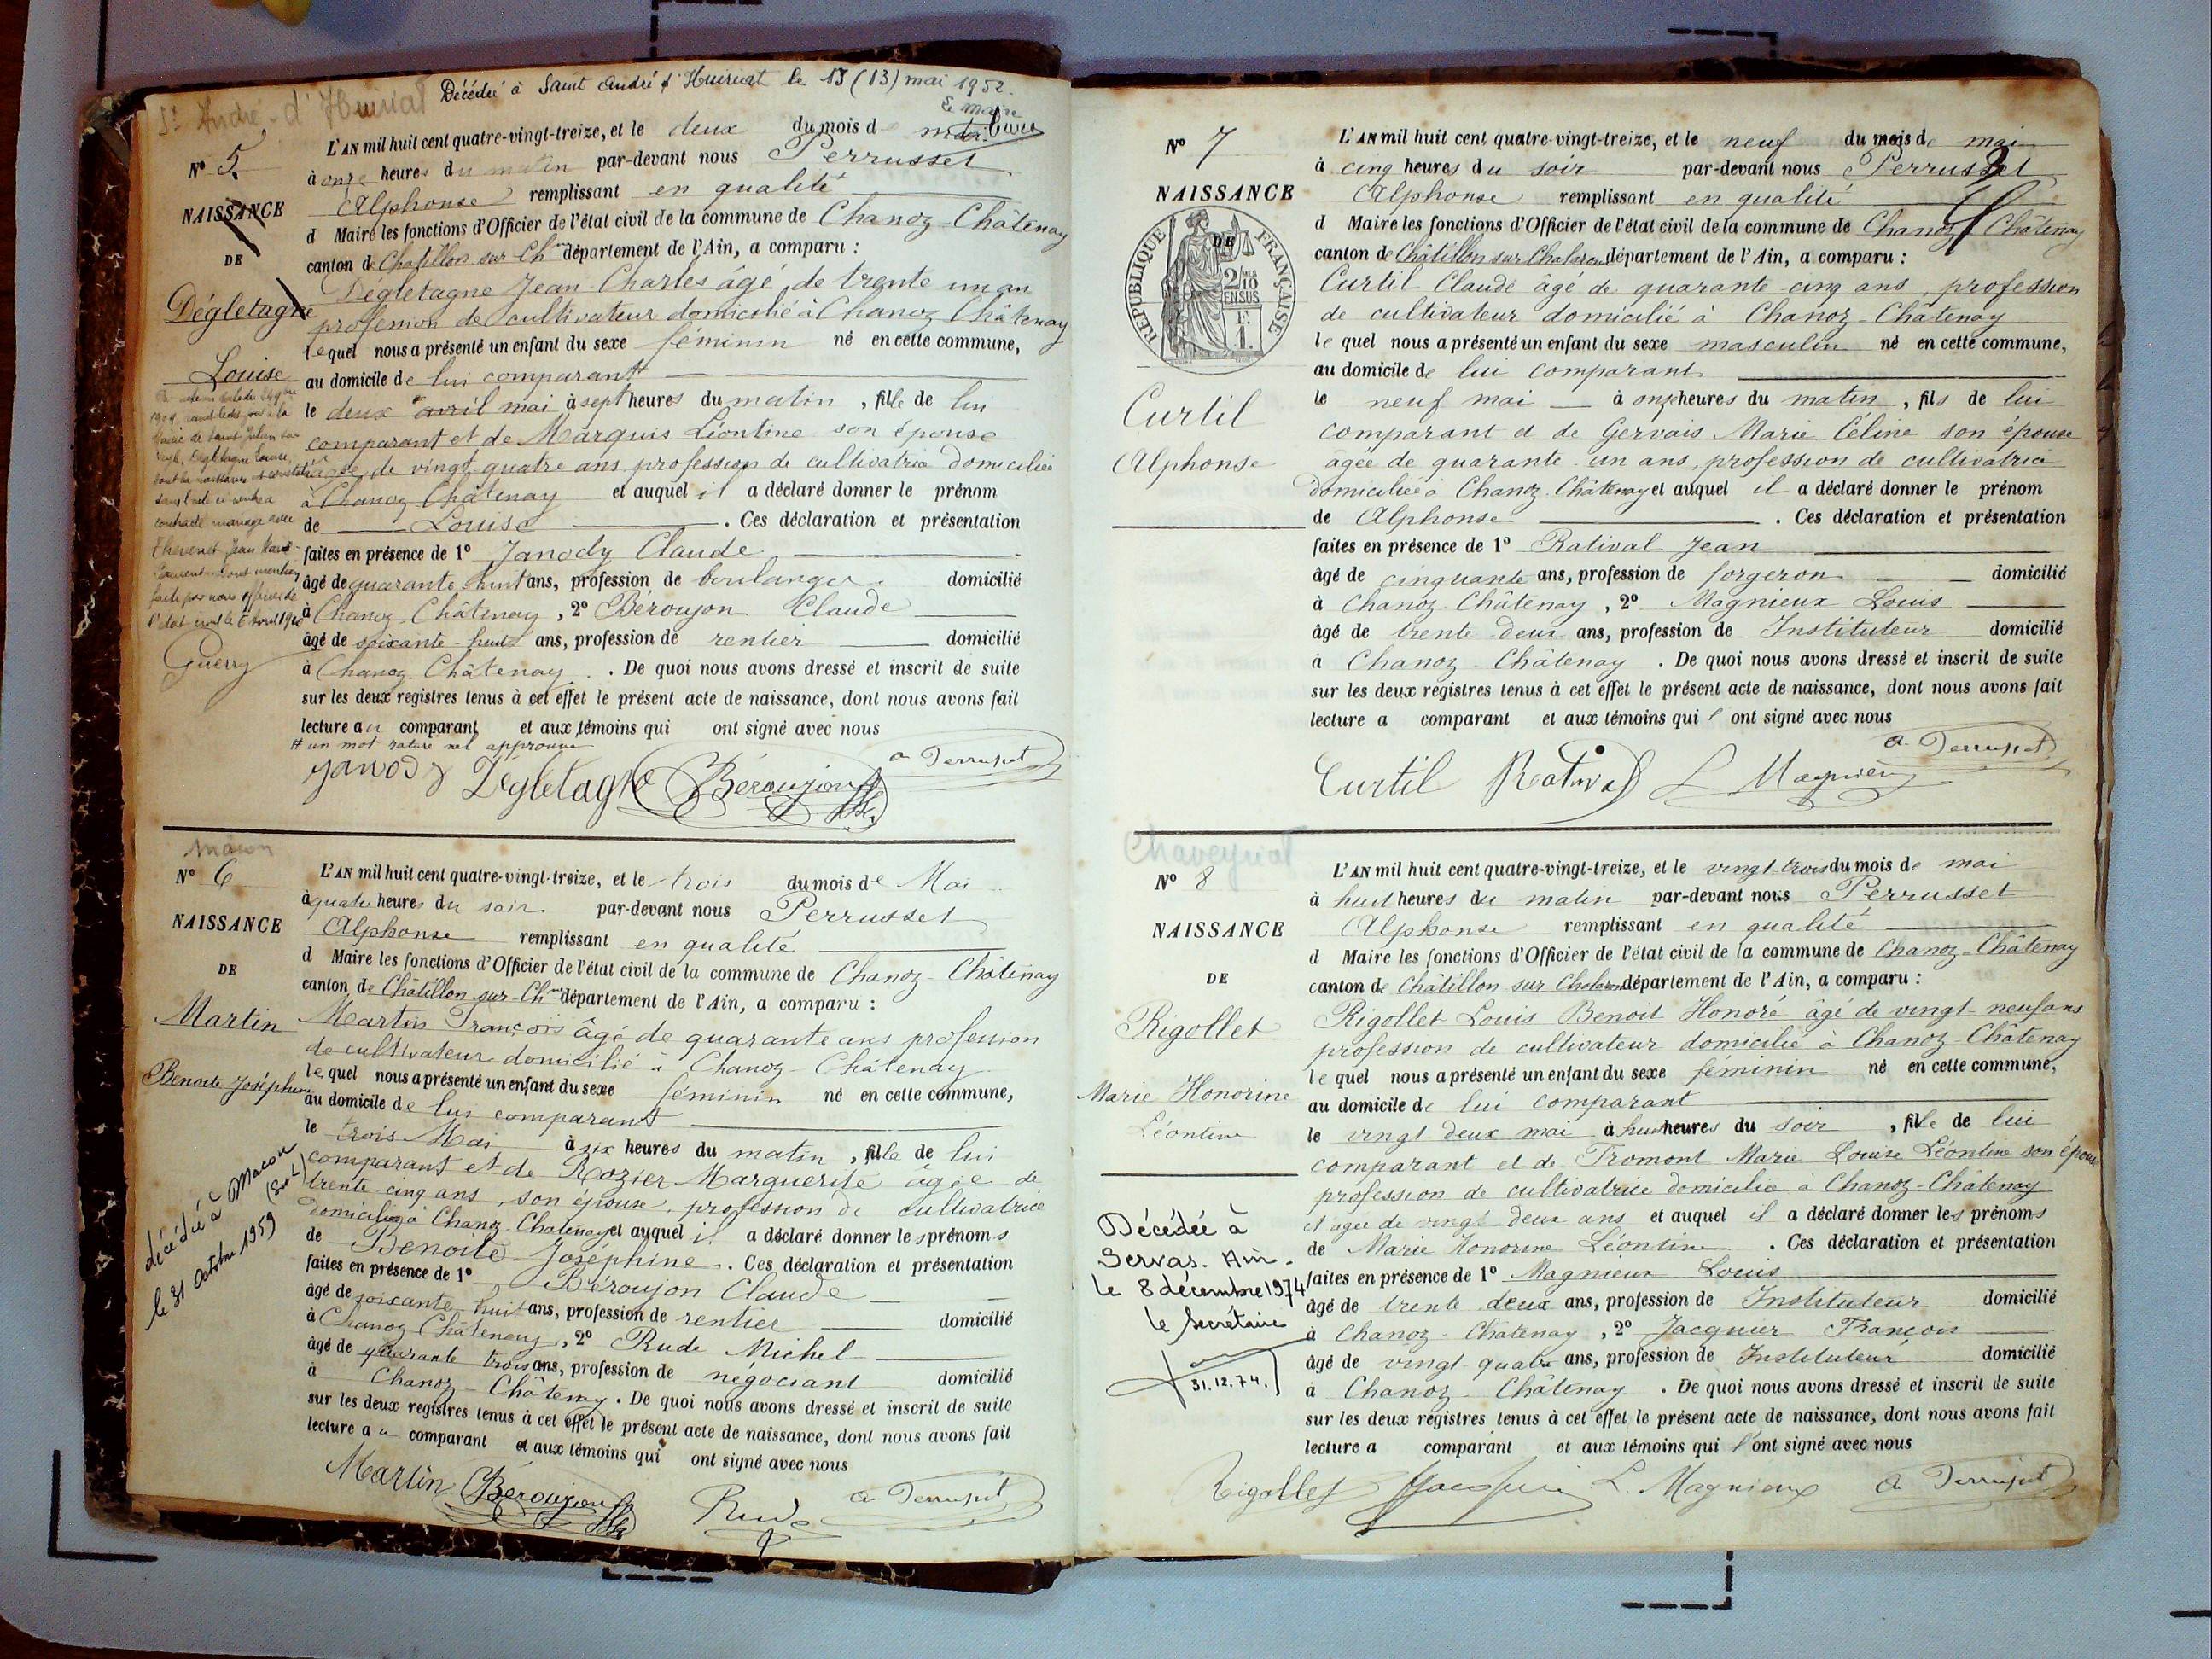 St André-d'Huiriat
Décédée à Saint André d'Huiriat le 13 (13) mai 1952.
Le maire
N° 5
NAISSANCE
DE
Dégletagne
Louise
L'AN mil huit cent quatre-vingt-treize, et le deux du mois d mai
à onze heures du matin par-devant nous Perrusset
Alphonse remplissant en qualité
d Maire les fonctions d'Officier de l'état civil de la commune de Chanoz-Châtenay
canton de Chatillon sur Chne département de l'Ain, a comparu :
Dégletagne Jean-Charles âgé de trente un an
profession de cultivateur domicilié à Chanoz Châtenay
lequel nous a présenté un enfant du sexe féminin né en cette commune,
au domicile de lui comparant
le deux avril mai à sept heures du matin, fille de lui
comparant et de Marquis Léontine son épouse
âgée de vingt quatre ans profession de cultivatrice domiciliée
à Chanoz Châtenay et auquel il a déclaré donner le prénom
de Louise. Ces déclaration et présentation
faites en présence de 1° Janody Claude
âgé de quarante huit ans, profession de boulanger domicilié
à Chanoz Châtenay, 2° Béroujon Claude
âgé de soixante-huit ans, profession de rentier domicilié
à Chanoz Châtenay. De quoi nous avons dressé et inscrit de suite
sur les deux registres tenus à cet effet le présent acte de naissance, dont nous avons fait
lecture au comparant et aux témoins qui ont signé avec nous
# un mot raturé nul approuvé
Janody Dégletagne Béroujon a Perrusset
1919
Mairie de Saint Julien sur
Veyle, Dégletagne Louise,
dont la naissance est constatée
dans l'acte ci contre a
contracté mariage avec
Thevenet Jean Marie
Laurent dont mention
faite par nous officier de
l'état civil le 6 Avril 1920
Guerry
macon
N° 6
NAISSANCE
DE
Martin
Benoite Joséphine
décédée à Macon
(S. et L.)
le 31 octobre 1959
L'AN mil huit cent quatre-vingt-treize, et le trois du mois de Mai
à quatre heures du soir par-devant nous Perrusset
Alphonse remplissant en qualité
d Maire les fonctions d'Officier de l'état civil de la commune de Chanoz-Châtenay
canton de Châtillon-sur-Chne département de l'Ain, a comparu :
Martin François âgé de quarante ans profession
de cultivateur domicilié à Chanoz-Châtenay
lequel nous a présenté un enfant du sexe féminin né en cette commune,
au domicile de lui comparant
le trois Mai à six heures du matin, fille de lui
comparant et de Rozier Marguerite âgée de
trente-cinq ans, son épouse, profession de cultivatrice
domiciliée à Chanoz-Chatenay et auquel il a déclaré donner les prénoms
de Benoite Joséphine. Ces déclaration et présentation
faites en présence de 1° Béroujon Claude
âgé de soixante huit ans, profession de rentier domicilié
à Chanoz Châtenay, 2° Rude Michel
âgé de quarante trois ans, profession de négociant domicilié
à Chanoz-Châtenay. De quoi nous avons dressé et inscrit de suite
sur les deux registres tenus à cet effet le présent acte de naissance, dont nous avons fait
lecture au comparant et aux témoins qui ont signé avec nous
Martin Béroujon Rude a Perrusset
N° 7
NAISSANCE
DE
RÉPUBLIQUE FRANÇAISE
2/10
EN SUS
F.
1.
Curtil
Alphonse
L'AN mil huit cent quatre-vingt-treize, et le neuf du mois de mai
à cinq heures du soir par-devant nous Perrusset
Alphonse remplissant en qualité
d Maire les fonctions d'Officier de l'état civil de la commune de Chanoz Châtenay
canton de Châtillon sur Chalaronne département de l'Ain, a comparu :
Curtil Claude âgé de quarante-cinq ans, profession
de cultivateur domicilié à Chanoz-Châtenay
lequel nous a présenté un enfant du sexe masculin né en cette commune,
au domicile de lui comparant
le neuf mai à onze heures du matin, fils de lui
comparant et de Gervais Marie Céline son épouse
âgée de quarante un ans, profession de cultivatrice
domiciliée à Chanoz-Châtenay et auquel il a déclaré donner le prénom
de Alphonse. Ces déclaration et présentation
faites en présence de 1° Ratival Jean
âgé de cinquante ans, profession de forgeron domicilié
à Chanoz Châtenay, 2° Magnieux Louis
âgé de trente deux ans, profession de Instituteur domicilié
à Chanoz-Châtenay. De quoi nous avons dressé et inscrit de suite
sur les deux registres tenus à cet effet le présent acte de naissance, dont nous avons fait
lecture a comparant et aux témoins qui l'ont signé avec nous
Curtil Ratival L Magnieux a Perrusset
Chaveyriat
N° 8
NAISSANCE
DE
Rigollet
Marie Honorine
Léontine
Décédée à
Servas. Ain.
le 8 décembre 1974
le Secrétaire
31.12.74.
L'AN mil huit cent quatre-vingt-treize, et le vingt-trois du mois de mai
à huit heures du matin par-devant nous Perrusset
Alphonse remplissant en qualité
d Maire les fonctions d'Officier de l'état civil de la commune de Chanoz-Châtenay
canton de Châtillon sur Chalaronne département de l'Ain, a comparu :
Rigollet Louis Benoit Honoré âgé de vingt-neuf ans
profession de cultivateur domicilié à Chanoz-Châtenay
lequel nous a présenté un enfant du sexe féminin né en cette commune,
au domicile de lui comparant
le vingt deux mai à huit heures du soir, fille de lui
comparant et de Tromont Marie Louise Léontine son épouse
profession de cultivatrice domiciliée à Chanoz-Châtenay
et agée de vingt deux ans et auquel il a déclaré donner les prénoms
de Marie Honorine Léontine. Ces déclaration et présentation
faites en présence de 1° Magnieux Louis
âgé de trente deux ans, profession de Instituteur domicilié
à Chanoz-Châtenay, 2° Jacquier François
âgé de vingt-quatre ans, profession de Instituteur domicilié
à Chanoz-Châtenay. De quoi nous avons dressé et inscrit de suite
sur les deux registres tenus à cet effet le présent acte de naissance, dont nous avons fait
lecture a comparant et aux témoins qui l'ont signé avec nous
Rigollet Jacquier L. Magnieux a Perrusset